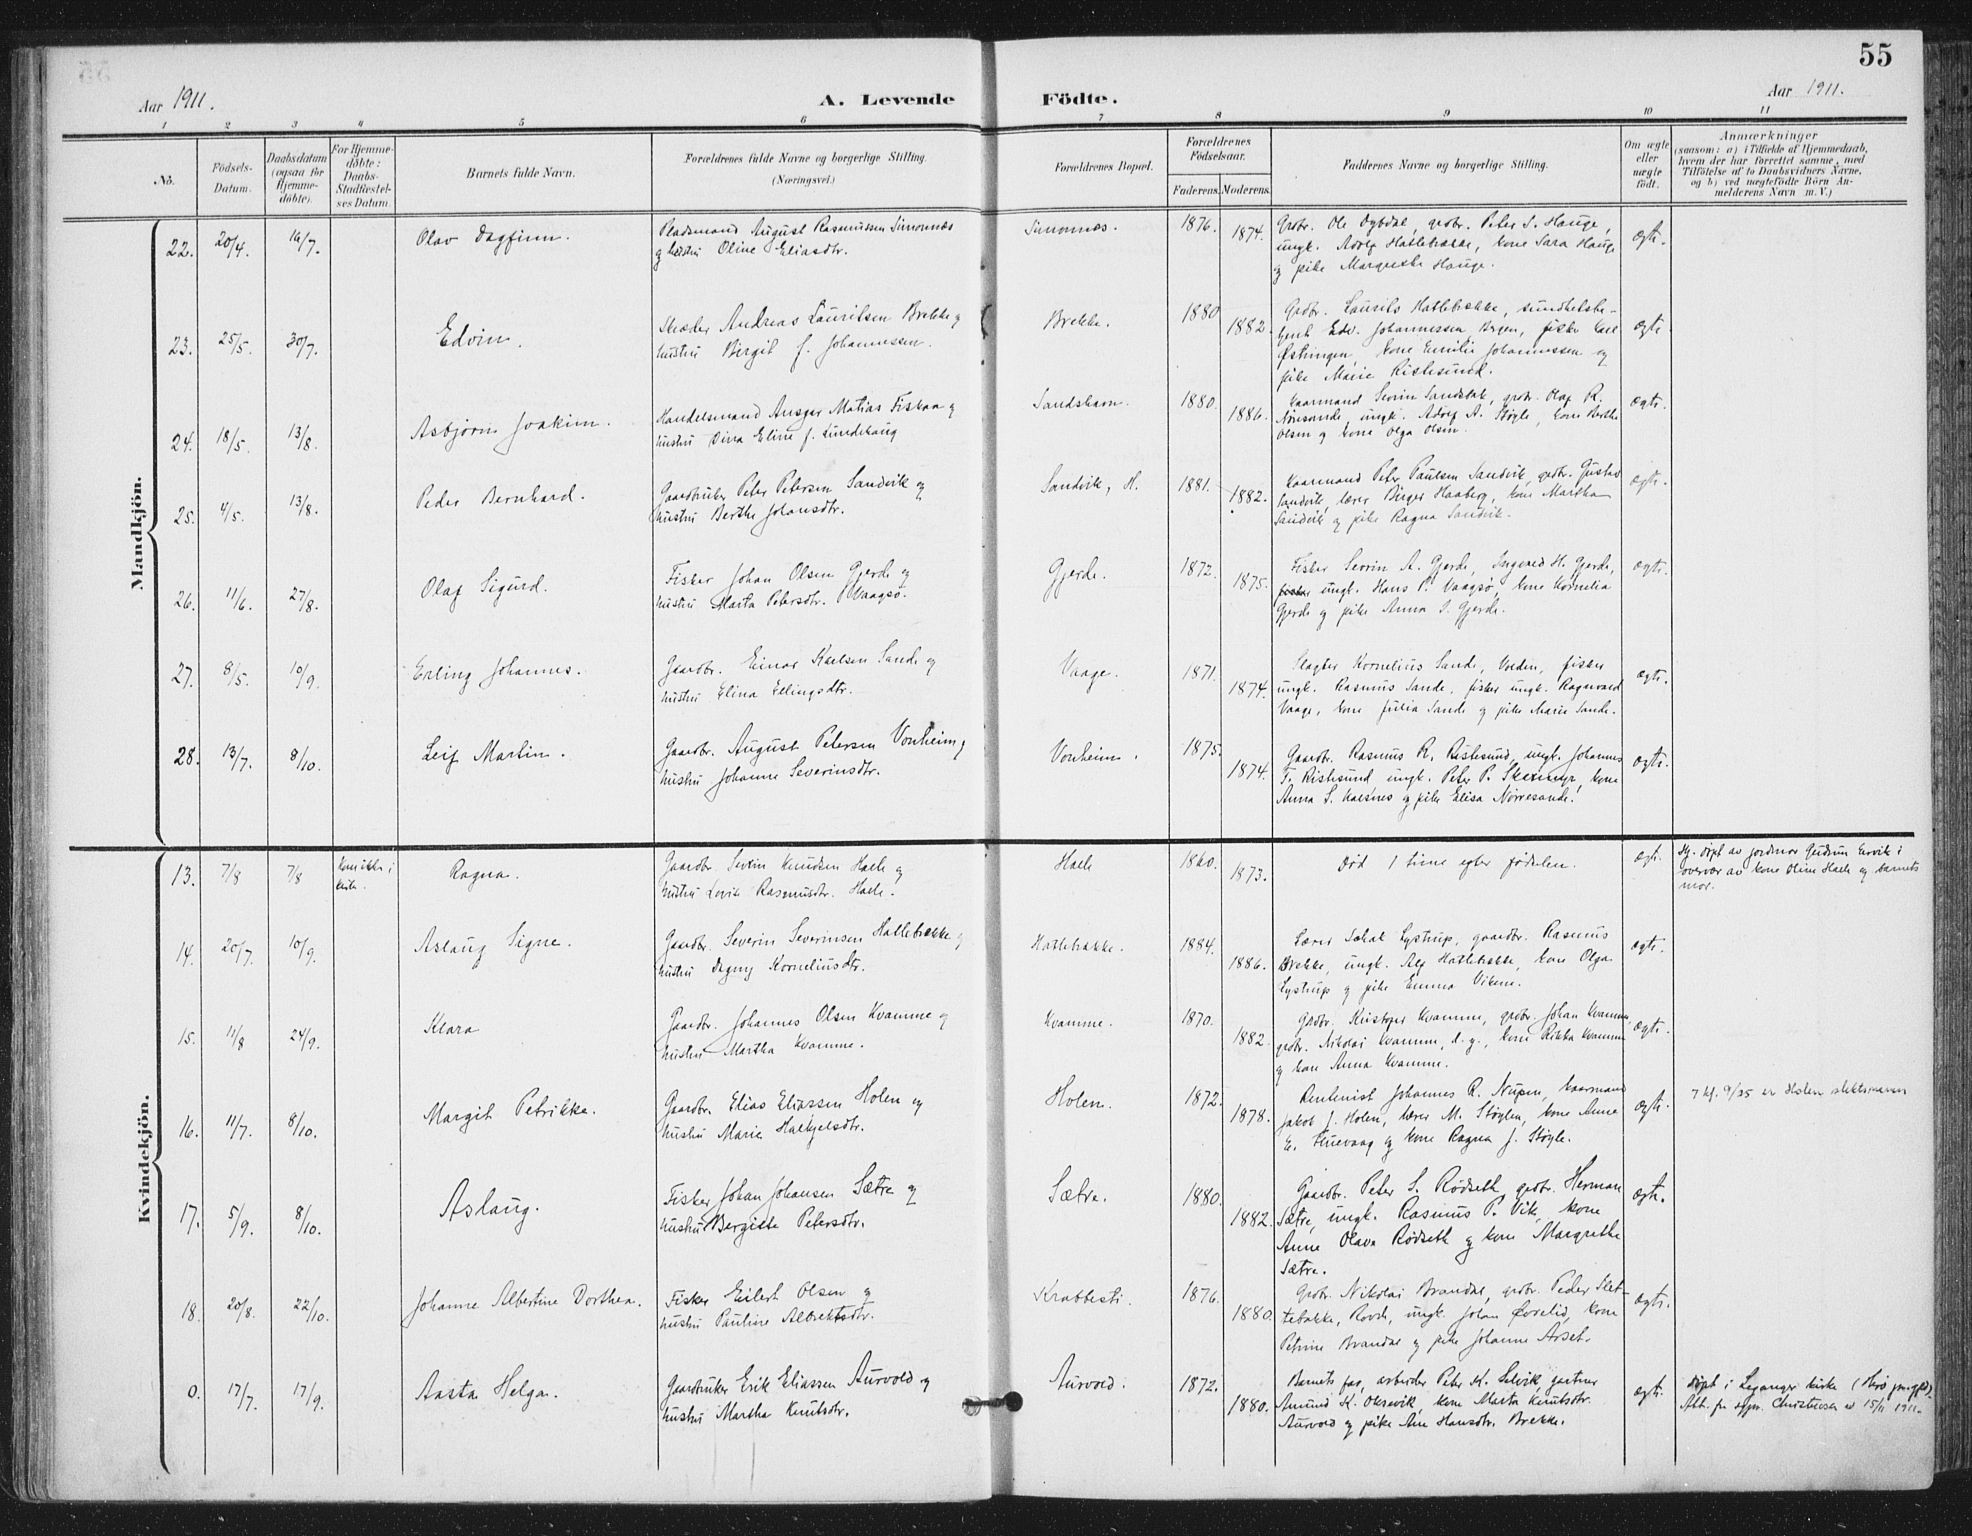 55
Aar 1911.
A. Levende
Födte.
Aar 1911.
1 2 3 4 5 6 7 8 9 10 11
No.
Födsels-
Datum.
Daabsdatum
(ogsaa for
Hjemme-
döbte).
For Hjemme-
döbte:
Daabs-
Stadfæstel-
ses Datum.
Barnets fulde Navn.
Forældrenes fulde Navne og borgerlige Stilling.
(Næringsvei.)
Forældrenes Bopæl.
Forældrenes
Födselsaar.
Faderens. Moderens.
Faddernes Navne og borgerlige Stilling.
Om ægte
eller
uægte
födt.
Anmærkninger
(saasom: a) i Tilfælde af Hjemmedaab,
hvem der har forrettet samme, med
Tilföielse af to Daabsvidners Navne,
og b) ved uægtefödte Börn An-
melderens Navn m. V.)
Mandkjön.
22. 20/4. 16/7. Olav Dagfinn.
Pladsmand August Rasmussen Simonnæs
og hustru Oline Eliasdtr.
Simonnæs. 1876. 1874.
Grdbr. Ole Dybdal, grdbr. Peter S. Hauge,
ungk. Adolf Hatlebrække, kone Sara Hauge
og pike Margrethe Hauge.
ægte.
23. 25/5. 30/7. Edvin.
Skræder Andreas Lauritsen Brekke og
hustru Birgit f. Johannessen.
Brekke. 1880 1882.
Grdbr. Laurits Hatlebrække, sundhetsbe-
tjent Edv. Johannessen Bergen, fisker Karl
Østringen, kone Emilie Johannessen og
pike Marie Ristesund.
ægte.
24. 18/5. 13/8. Asbjørn Joakim.
Handelsmand Ansgar Matias Fiskaa og
hustru Dina Eline f. Lundehaug
Sandshavn. 1880. 1886.
Kaarmand Sevrin Sandstak, grdbr. Olaf R.
Nøresande, ungk. Adolf A. Støyle, kone Berthe
Olsen og kone Olga Olsen.
ægte.
25. 4/5. 13/8. Peder Bernhard.
Gaardbruker Peter Petersen Sandvik og
hustru Berthe Johansdtr.
Sandvik, H. 1881. 1882.
Kaarmand Peter Paulsen Sandvik, grdbr. Gustav
Sandvik, lærer Birger Haaberg, kone Martha
Sandvik og pike Ragna Sandvik.
ægte.
26. 11/6. 27/8. Olaf Sigurd.
Fisker Johan Olsen Gjerde og
hustru Marta Petersdtr. Vaagsø.
Gjerde. 1872. 1875.
Fisker Sevrin A. Gjerde, Ingvald H. Gjerde,
fisker ungk. Hans P. Vaagsø, kone Kornelia
Gjerde og pike Anna S. Gjerde.
ægte.
27. 8/5. 10/9. Erling Johannes.
Gaardbr. Einar Karlsen Sande og
hustru Elina Ellingsdtr.
Vaage. 1871. 1874.
Slagter Kornelius Sande, Volden, fisker
ungk. Rasmus Sande, fisker ungk. Ragnvald
Vaage, kone Julia Sande og pike Marie Sande.
ægte.
28. 13/7. 8/10. Leif Martin.
Gaardbr. August Petersen Vonheim og
hustru Johanne Severinsdtr.
Vonheim. 1875. 1874.
Gaardbr. Rasmus R. Ristesund, ungk. Johannes
T. Ristesund ungk. Peter P. Skeimyr, kone
Anna S. Kalsnes og pike Elisa Nørresande.
ægte.
Kvindekjön.
13. 7/8 7/8 Kom ikke i
kirke.
Ragna.
Gaardbr. Severin Knudsen Hæle og
hustru Lovise Rasmusdtr. Hæle.
Hæle 1860. 1873.
Død 1 time efter fødselen.
ægte.
Hj. døpt av jordmor Gudrun Ervik i
overvær av kone Oline Hæle og barnets
mor.
14. 20/7. 10/9. Aslaug Signe.
Gaardbr. Severin Severinsen Hatlebrække og
hustru Dagny Korneliusdtr.
Hatlebrække. 1884. 1886.
Lærer Johat Lystrup, gaardbr. Rasmus
Brekke, ungk. Alf Hatlebrække, kone Olga
Lystrup og pike Emma Vikene.
ægte.
15. 11/8 24/9. Klara
Gaardbr. Johannes Olsen Kvamme og
hustru Martha Kvamme.
Kvamme. 1870. 1882.
Grdbr. Kristofer Kvamme, grdbr. Johan Kvamme,
grdbr. Nikolai Kvamme, d. y., kone Rikka Kvamme
og kone Anna Kvamme.
ægte.
16. 11/7. 8/10. Margit Petrikke.
Gaardbr. Elias Eliassen Holen og
hustru Marie Halkjelsdtr.
Holen. 1872. 1878.
Rentenist Johannes R. Nupen, kaarmand
Jakob J. Holen, lærer M. Støylen, kone Anne
E. Thuevaag og kone Ragna J. Støyle.
ægte.
7 kf. 9/25 er Holen slektsnavn
17. 5/9. 8/10. Aslaug.
Fisker Johan Johansen Sætre og
hustru Bergitte Petersdtr.
Sætre. 1880. 1882.
Gaardbr. Peter S. Rødseth, grdbr. Herman
Sætre, ungk. Rasmus P. Vik, kone
Anne Olava Rødseth og kone Margrethe
Sætre.
ægte.
18. 20/8. 22/10. Johanne Albertine Dorthea.
Fisker Eilert Olsen og
hustru Pauline Albrektsdtr.
Krabbesti. 1876. 1880.
Grdbr. Nikolai Brandal, grdbr. Peder Slet-
tebakke, Rovde, ungk. Johan Øvrelid, kone
Petrine Brandal og pike Johanne Arset.
ægte.
0. 17/7. 17/9. Aasta Helga.
Gaardbruker Erik Eliassen Aurvold og
hustru Martha Knutsdtr.
Aurvold. 1872. 1880.
Barnets far, arbeider Peter K. Selvik gartner
Amund K. Oksavik, kone Marta Knutsdtr.
Aurvold og pike Ane Hansdtr. Brekke.
ægte.
Døpt i Leganger kirke (Herø prgjld)
Att. fra sogpr. Christensen af 15/11 1911.